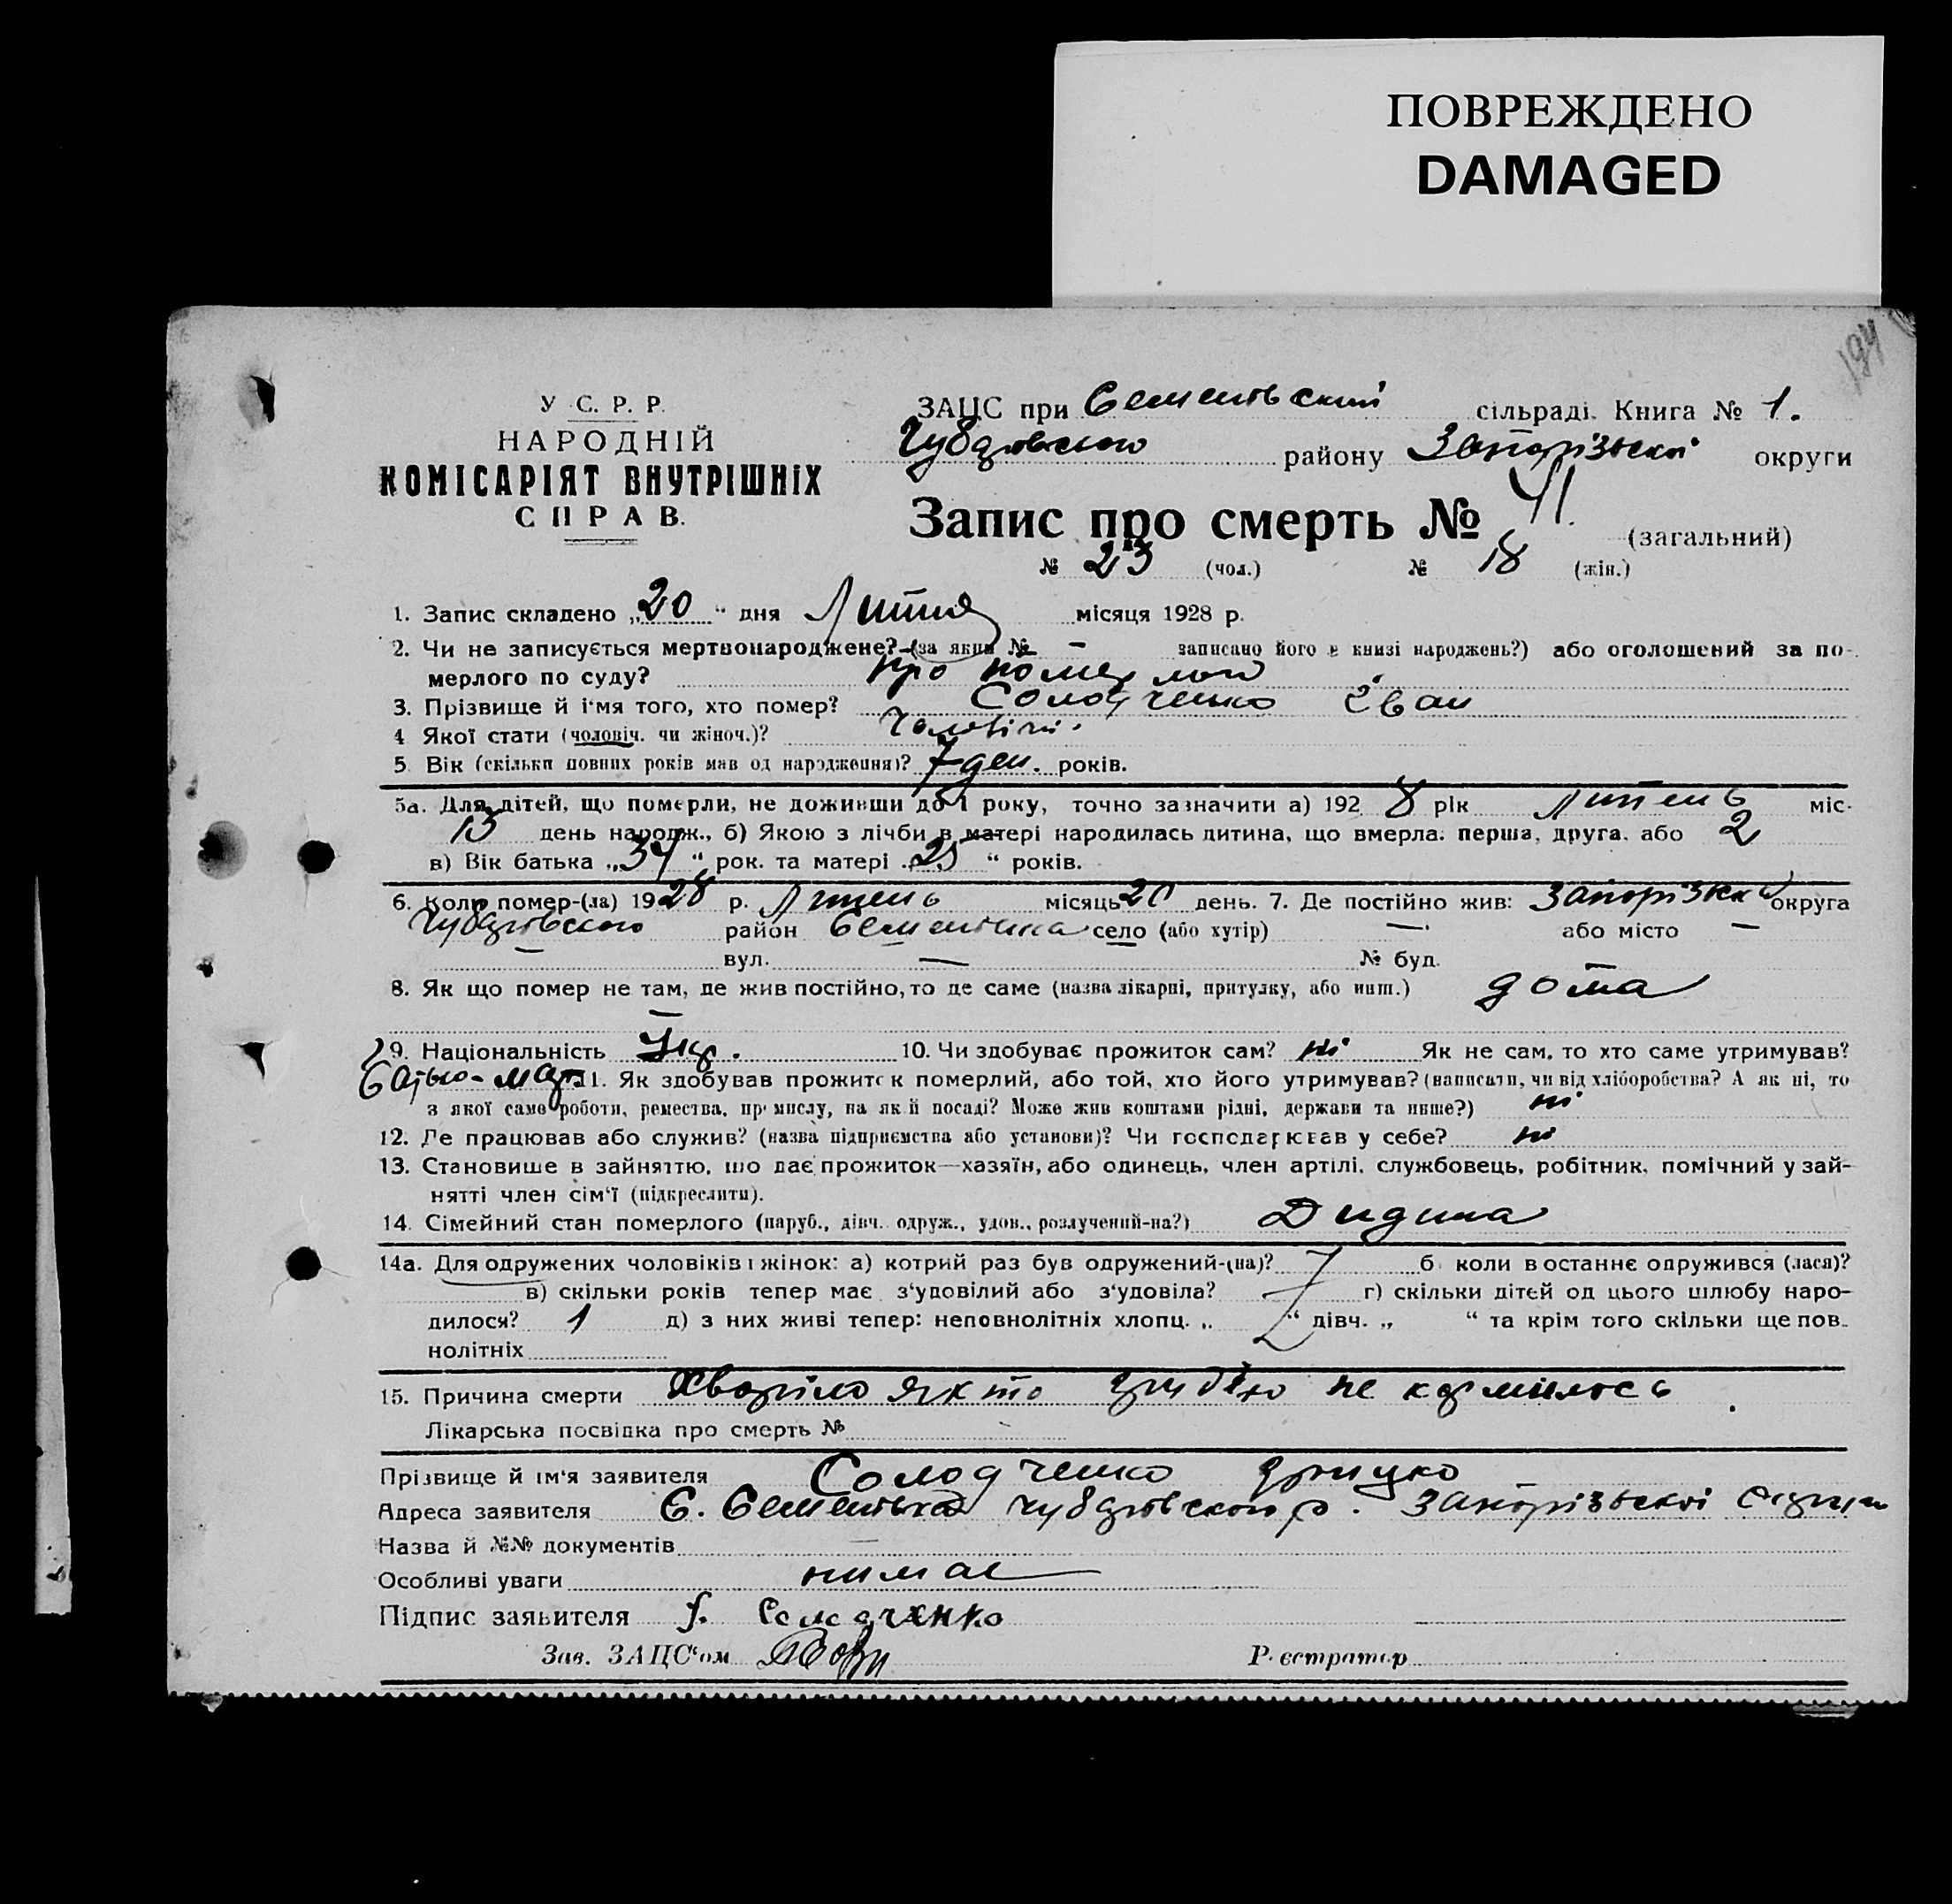 ПОВРЕЖДЕНО
DAMAGED
194
У.С.Р.Р.
НАРОДНІЙ
КОМІСАРІЯТ ВНУТРІШНІХ
СПРАВ.
ЗАЦС при Семенівский сільраді. Книга № 1.
Чубарівського району Запорізької округи
Запис про смерть № 41. (загальний)
№ 23 (чол.) № 18 (жін.)
1. Запис складено „20“ дня Липня місяця 1928 р.
2. Чи не записується мертвонароджене? (за яким № - записано його в книзі народжень?) або оголошений за по-
мерлого по суду? про
3. Прізвище й ім‘я того, хто помер? Солодченко Іван
4 Якої стати (чоловіч. чи жіноч.)?
5 Вік (скільки повних років мав од народження)? 7 ден. років.
5а. Для дітей, що померли, не доживши до 1 року, точно зазначити а) 1928 рік Липень міс.
13 день народж., б) Якою з лічби в матері народилась дитина, що вмерла: перша, друга, або 2
в) Вік батька „34“ рок. та матері „25“ років.
6. Коли помер-(ла) 1928 р. Липень місяць 20 день. 7. Де постійно жив: Запорізька округа
Чубарівського район Семенівка село (або хутір) — або місто —
— вул. — № буд.
8. Як що помер не там, де жив постійно, то де саме (назва лікарні, притулку, або инш.) дома
9. Національність Укр. 10. Чи здобуває прожиток сам? ні Як не сам, то хто саме утримував?
11. Як здобував прожиток померлий, або той, хто його утримував? (написати, чи від хліборобства? А як ні, то
з якої саме роботи, ремества, промислу, на якій посаді? Може жив коштами рідні, держави та инше?) ні
12. Де працював або служив? (назва підприємства або установи)? Чи господарював у себе? ні
13. Становище в зайняттю, що дає прожиток—хазяїн, або одинець, член артілі, службовець, робітник, помічний у зай-
нятті член сім‘ї (підкреслити).
14. Сімейний стан померлого (паруб., дівч. одруж., удов., розлучений-на?) Дидина
14а. Для одружених чоловіків і жінок: а) котрий раз був одружений-(на)? б) коли востаннє одружився (лася)?
в) скільки років тепер має з‘удовілий або з‘удовіла? г) скільки дітей од цього шлюбу наро-
дилося? 1 д) з них живі тепер: неповнолітніх хлопц. „ “ дівч. „ “ та крім того скільки ще пов-
нолітніх
15. Причина смерти не
Лікарська посвідка про смерть №
Прізвище й ім‘я заявителя Солодченко Грицко
Адреса заявителя С. Семенівка Чубарівского р. Запорізької
Назва й №№ документів —
Особливі уваги нимає
Підпис заявителя Солодченко
Зав. ЗАЦС‘ом Реєстратор